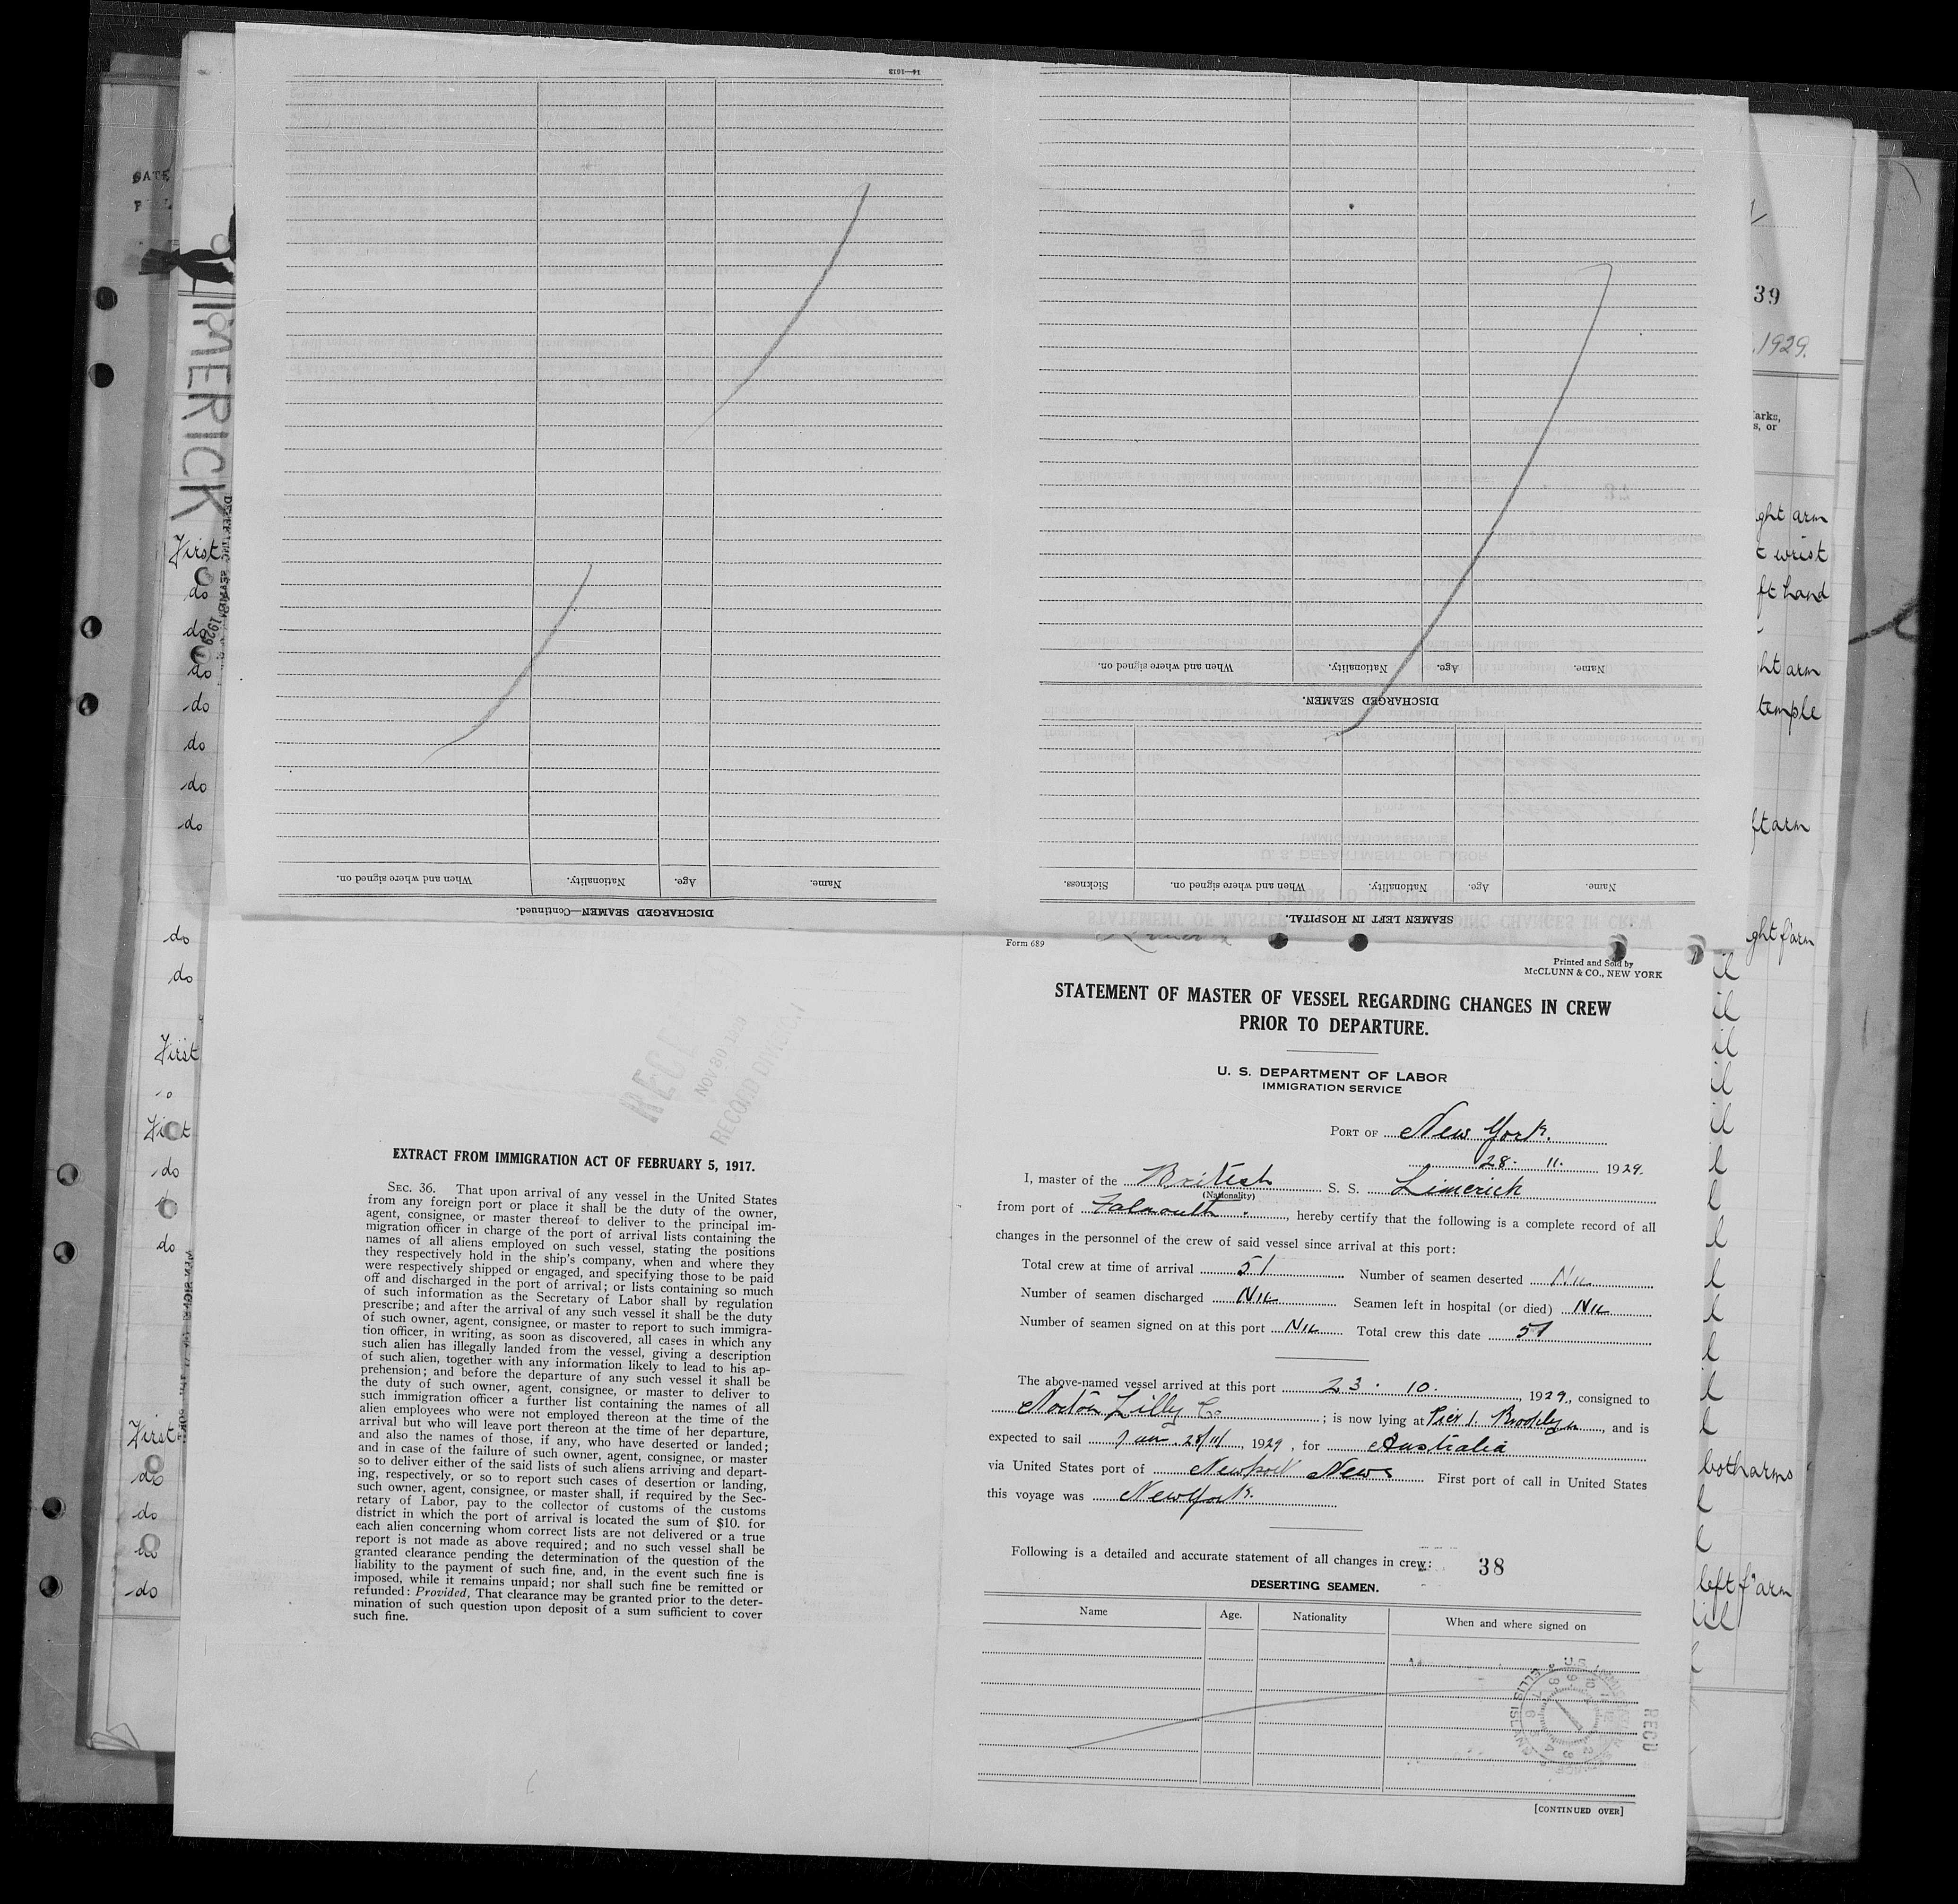 14—1613
DISCHARGED SEAMEN—Continued.
Name. Age. Nationality. When and where signed on.
SEAMEN LEFT IN HOSPITAL.
Name. Age. Nationality. When and where signed on. Sickness.
DISCHARGED SEAMEN.
Name. Age. Nationality. When and where signed on.
DATE
39
1929.
arks,
s, or
ght arm
t wrist
ft hand
ht arm
temple
ft arm
ght f'arm
both arms
left f'arm
LIMERICK
First
do
do
do
do
do
do
do
do
do
First
do
do
First
do
do
do
do
Form 689
Printed and Sold by
McCLUNN & CO., NEW YORK
STATEMENT OF MASTER OF VESSEL REGARDING CHANGES IN CREW
PRIOR TO DEPARTURE.
U. S. DEPARTMENT OF LABOR
IMMIGRATION SERVICE
PORT OF New York.
28. 11. 1929.
I, master of the British S. S. Limerick
(Nationality)
from port of Falmouth., hereby certify that the following is a complete record of all
changes in the personnel of the crew of said vessel since arrival at this port:
Total crew at time of arrival 51 Number of seamen deserted Nil
Number of seamen discharged Nil Seamen left in hospital (or died) Nil
Number of seamen signed on at this port Nil Total crew this date 51
The above-named vessel arrived at this port 23. 10. 1929, consigned to
Norton Lilly Co; is now lying at Pier 1. Brooklyn, and is
expected to sail 28/11/, 1929, for Australia
via United States port of Newport News First port of call in United States
this voyage was New York.
Following is a detailed and accurate statement of all changes in crew: 38
DESERTING SEAMEN.
Name Age. Nationality When and where signed on
RECD
ELLIS ISLAND
[CONTINUED OVER]
NOV 30
RECORD DIVISION
EXTRACT FROM IMMIGRATION ACT OF FEBRUARY 5, 1917.
SEC. 36. That upon arrival of any vessel in the United States
from any foreign port or place it shall be the duty of the owner,
agent, consignee, or master thereof to deliver to the principal im-
migration officer in charge of the port of arrival lists containing the
names of all aliens employed on such vessel, stating the positions
they respectively hold in the ship's company, when and where they
were respectively shipped or engaged, and specifying those to be paid
off and discharged in the port of arrival; or lists containing so much
of such information as the Secretary of Labor shall by regulation
prescribe; and after the arrival of any such vessel it shall be the duty
of such owner, agent, consignee, or master to report to such immigra-
tion officer, in writing, as soon as discovered, all cases in which any
such alien has illegally landed from the vessel, giving a description
of such alien, together with any information likely to lead to his ap-
prehension; and before the departure of any such vessel it shall be
the duty of such owner, agent, consignee, or master to deliver to
such immigration officer a further list containing the names of all
alien employees who were not employed thereon at the time of the
arrival but who will leave port thereon at the time of her departure,
and also the names of those, if any, who have deserted or landed;
and in case of the failure of such owner, agent, consignee, or master
so to deliver either of the said lists of such aliens arriving and depart-
ing, respectively, or so to report such cases of desertion or landing,
such owner, agent, consignee, or master shall, if required by the Sec-
retary of Labor, pay to the collector of customs of the customs
district in which the port of arrival is located the sum of $10. for
each alien concerning whom correct lists are not delivered or a true
report is not made as above required; and no such vessel shall be
granted clearance pending the determination of the question of the
liability to the payment of such fine, and, in the event such fine is
imposed, while it remains unpaid; nor shall such fine be remitted or
refunded: Provided, That clearance may be granted prior to the deter-
mination of such question upon deposit of a sum sufficient to cover
such fine.